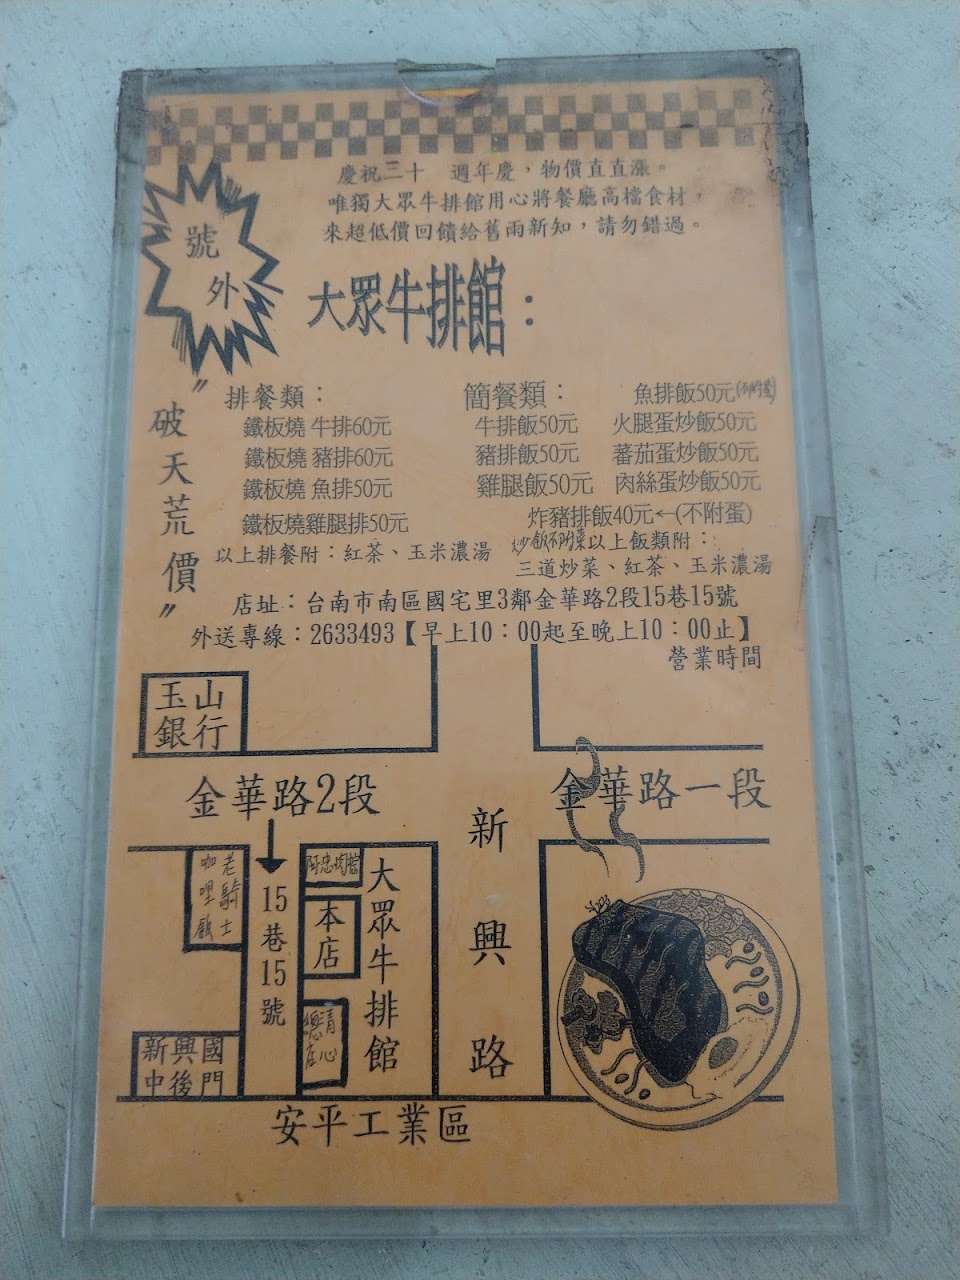 慶祝三十 週年慶，物價直直漲。
唯獨大眾牛排館用心將餐廳高檔食材，
來超低價回饋給舊雨新知，請勿錯過。
號外
大眾牛排館：
"破天荒價"
排餐類：
鐵板燒 牛排60元
鐵板燒 豬排60元
鐵板燒 魚排50元
鐵板燒雞腿排50元
以上排餐附：紅茶、玉米濃湯
簡餐類： 魚排飯50元(不附蛋)
牛排飯50元 火腿蛋炒飯50元
豬排飯50元 蕃茄蛋炒飯50元
雞腿飯50元 肉絲蛋炒飯50元
炸豬排飯40元←(不附蛋)
炒飯不附菜以上飯類附：
三道炒菜、紅茶、玉米濃湯
店址：台南市南區國宅里3鄰金華路2段15巷15號
外送專線：2633493【早上10：00起至晚上10：00止】
營業時間
玉山
銀行
金華路2段
金華路一段
新興路
老騎士
咖哩飯
15巷15號
阿忠肉燥
本店
清心
總店
大眾牛排館
新興國
中後門
安平工業區